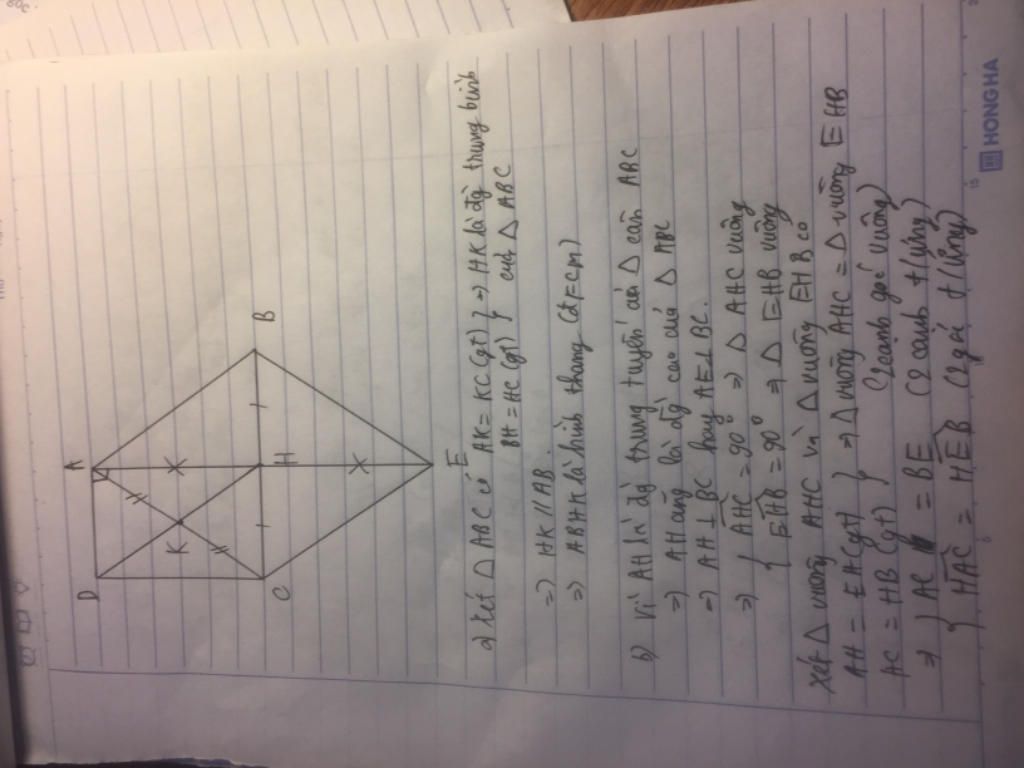 D
A
K
C
H
B
E
a) Xét Δ ABC có AK = KC (gt) } => HK là đg trung bình
BH = HC (gt) } của Δ ABC
=> HK // AB.
=> ABHK là hình thang (đfcm)
b) Vì AH là đg trung tuyến của Δ cân ABC
=> AH cũng là đg cao của Δ ABC
=> AH ⊥ BC hay AE ⊥ BC.
=> { AHC = 90° => Δ AHC vuông
{ EHB = 90° => Δ EHB vuông
Xét Δ vuông AHC và Δ vuông EHB có
AH = EH (gt) } => Δ vuông AHC = Δ vuông EHB
HC = HB (gt) } (2 cạnh góc vuông)
=> } AC = BE (2 cạnh t/ứng)
{ HAC = HEB (2 góc t/ứng)
HONG HA